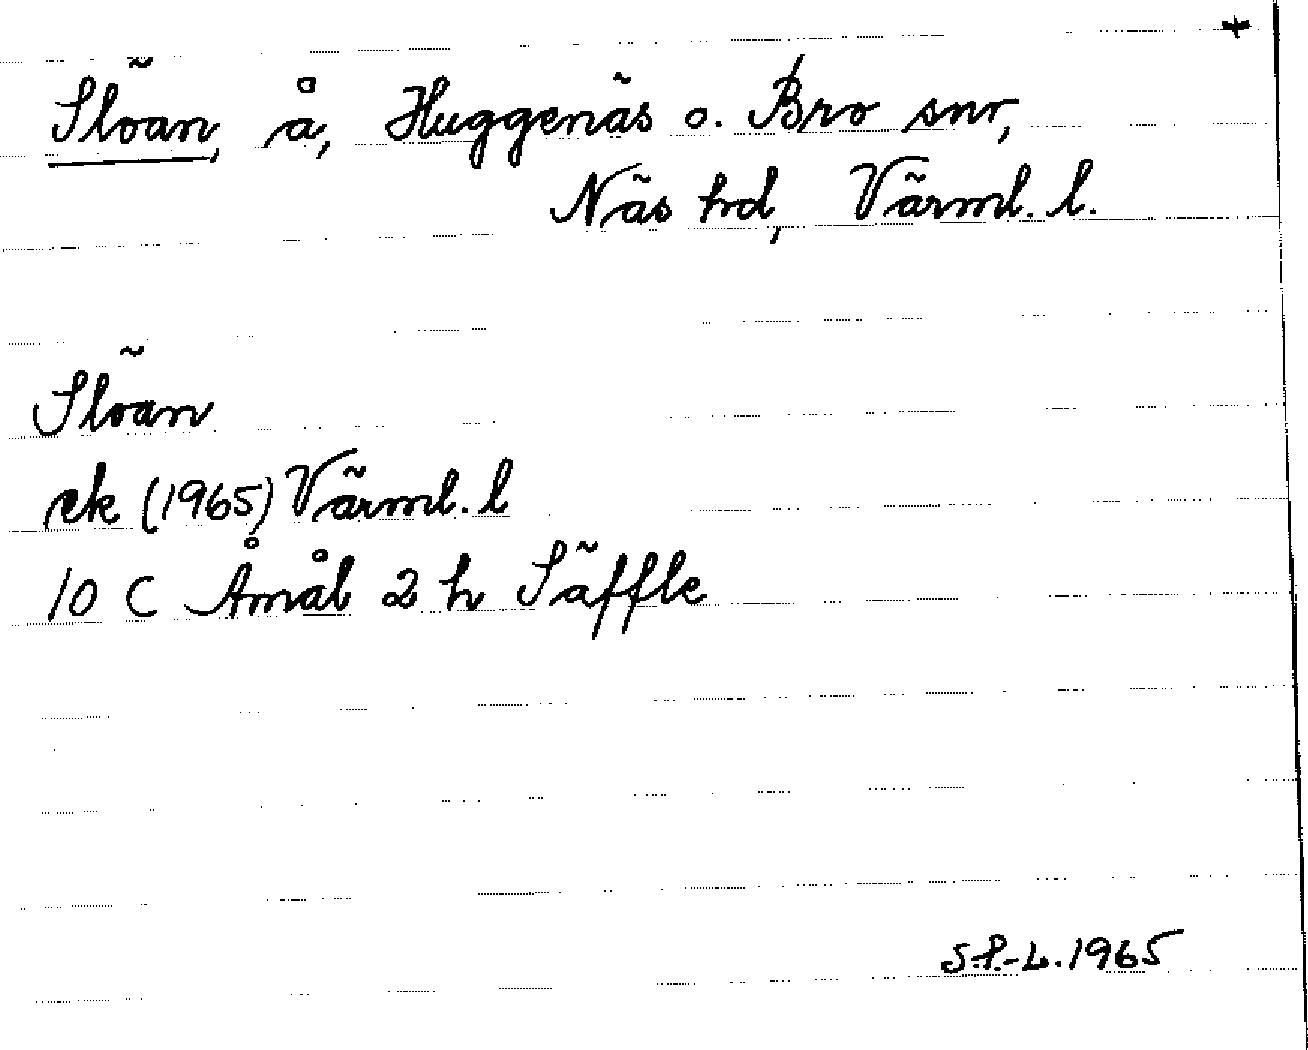 +
Slöan, å, Huggenäs o. Bro snr,
Näs hd, Värml. l.
Slöan
ek (1965) Värml. l
10 C Åmål 2 h Säffle
S.P.-L. 1965